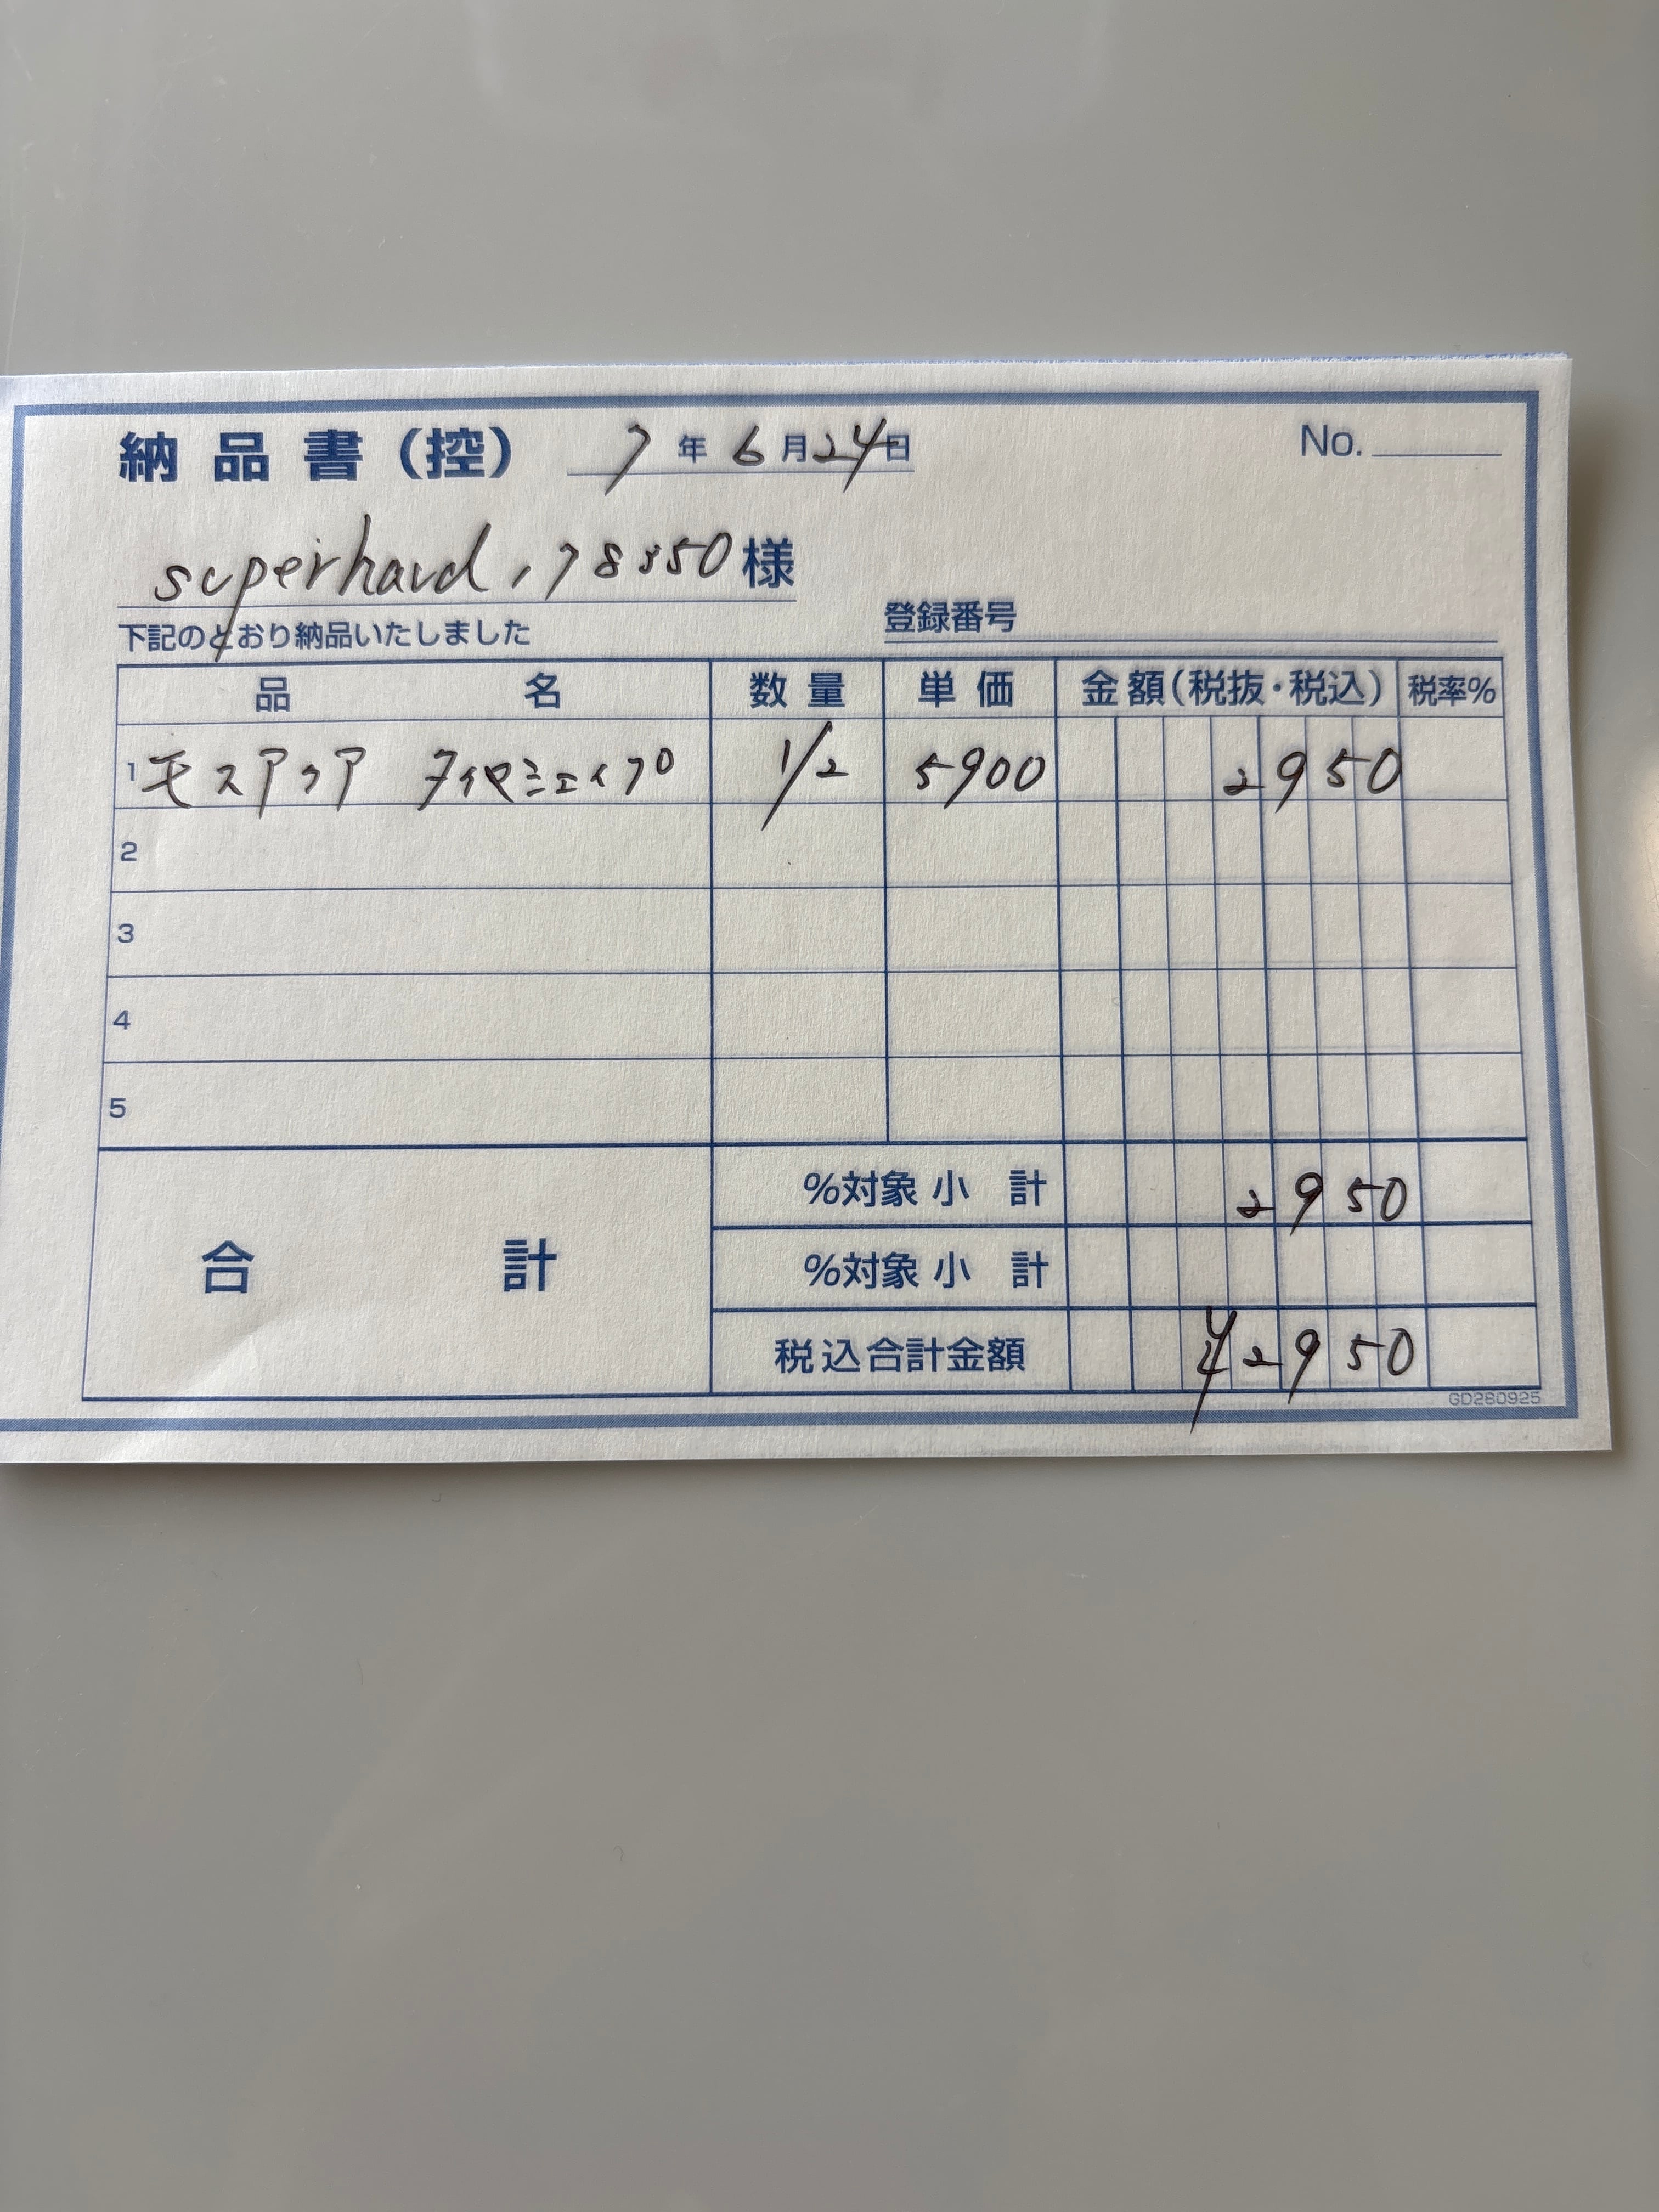 納品書(控) 7年6月24日 No.
superhard,78350様
下記のとおり納品いたしました 登録番号
品名 数量 単価 金額(税抜・税込) 税率%
1 モスアクア ダイヤシェイプ 1/2 5900 2950
2
3
4
5
合計
%対象 小計 2950
%対象 小計
税込合計金額 ¥2950
GD280925